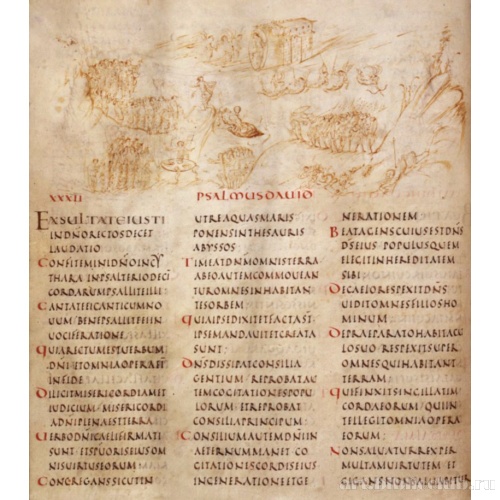 XXXII
PSALMUSDAUID
EXSULTATEIUSTI
INDNORECTOSDICET
LAUDATIO
CONFITEMINIDNOINCY
THARAINPSALTERIODECE
CORDARUMPSALLITEILLI:
CANTATEEICANTICUMNO
UUMBENEPSALLITEEIIN
UOCIFERATIONE
QUIARECTUMESTUERBUM
DNIETOMNIAOPERAEI
INFIDE
DILIGITMISERICORDIAMET
IUDICIUMMISERICORDI
ADNIPLENAESTTERRA
UERBODNICAELIFIRMATI
SUNTETSPUORISEIUSOM
NISUIRTUSEORUM
CONGREGANSSICUTIN
UTREAQUASMARIS
PONENSINTHESAURIS
ABYSSOS
TIMEATDNMOMNISTERRA
ABEOAUTEMCOMMOUEAN
TUROMNESINHABITAN
TESORBEM
QUIAIPSEDIXITETFACTAST
IPSEMANDAUITETCREATA
SUNT:
DNSDISSIPATCONSILIA
GENTIUMREPROBATAU
TEMCOGITATIONESPOPU
LORUMETREPROBAT
CONSILIAPRINCIPUM:
CONSILIUMAUTEMDNIIN
AETERNUMMANETCO
GITATIONISCORDISEIUS
INGENERATIONEETGE
NERATIONEM
BEATAGENSCUIUSESTDNS
DSEIUSPOPULUSQUEM
ELEGITINHEREDITATEM
SIBI
DECAELORESPEXITDNS
UIDITOMNESFILIOSHO
MINUM
DEPRAEPARATOHABITACU
LOSUORESPEXITSUPER
OMNESQUIHABITANT
TERRAM
QUIFINXITSINGILLATIM
CORDAEORUMQUIIN
TELLEGITOMNIAOPERA
EORUM:
NONSALUATURREXPER
MULTAMUIRTUTEMET
GIGANSNONSALUABITUR